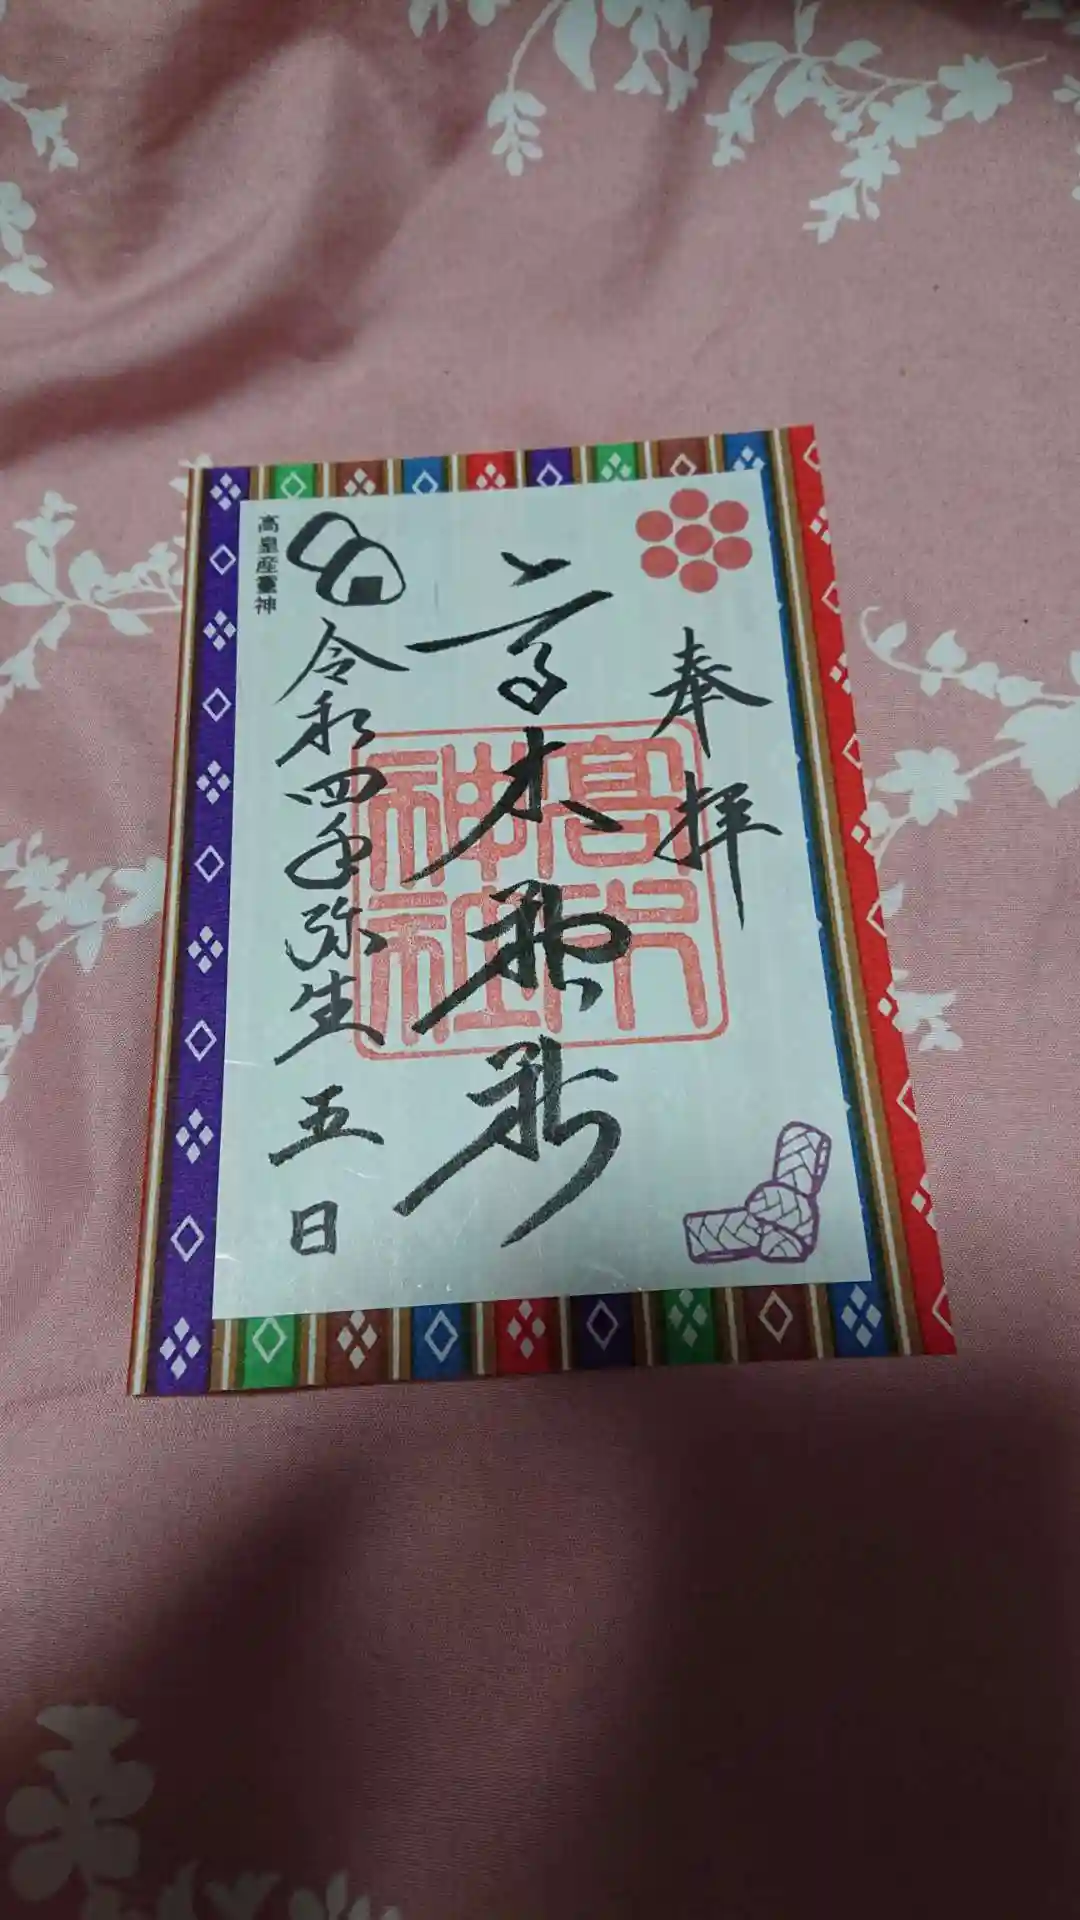 奉拝
高木神社
高木神社
令和四年弥生五日
高皇産靈神